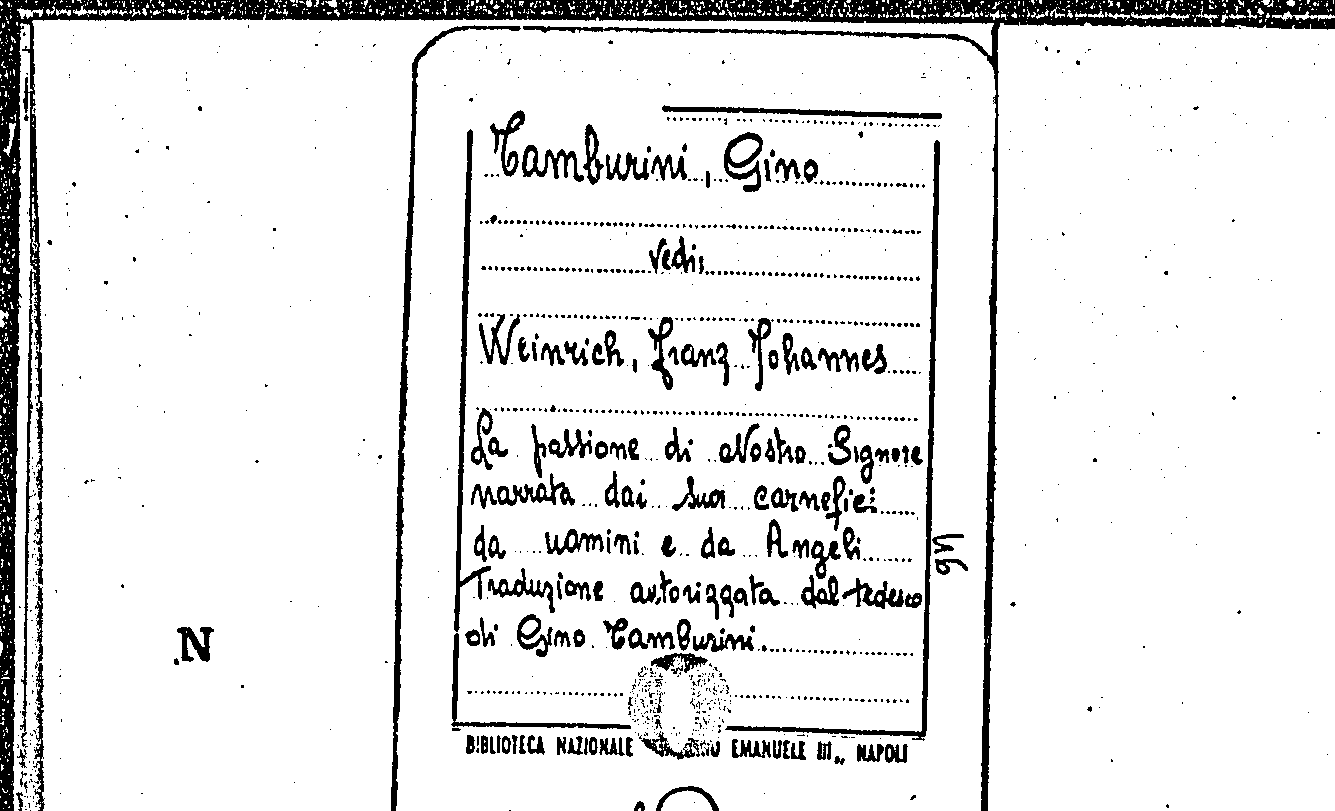 Tamburini, Gino
vedi,
Weinrich, Franz Johannes
La passione di Nostro Signore
narrata dai suoi carnefici
da uomini e da Angeli
Traduzione autorizzata dal tedesco
di Gino Tamburini.
N
BIBLIOTECA NAZIONALE EMANUELE III„ NAPOLI